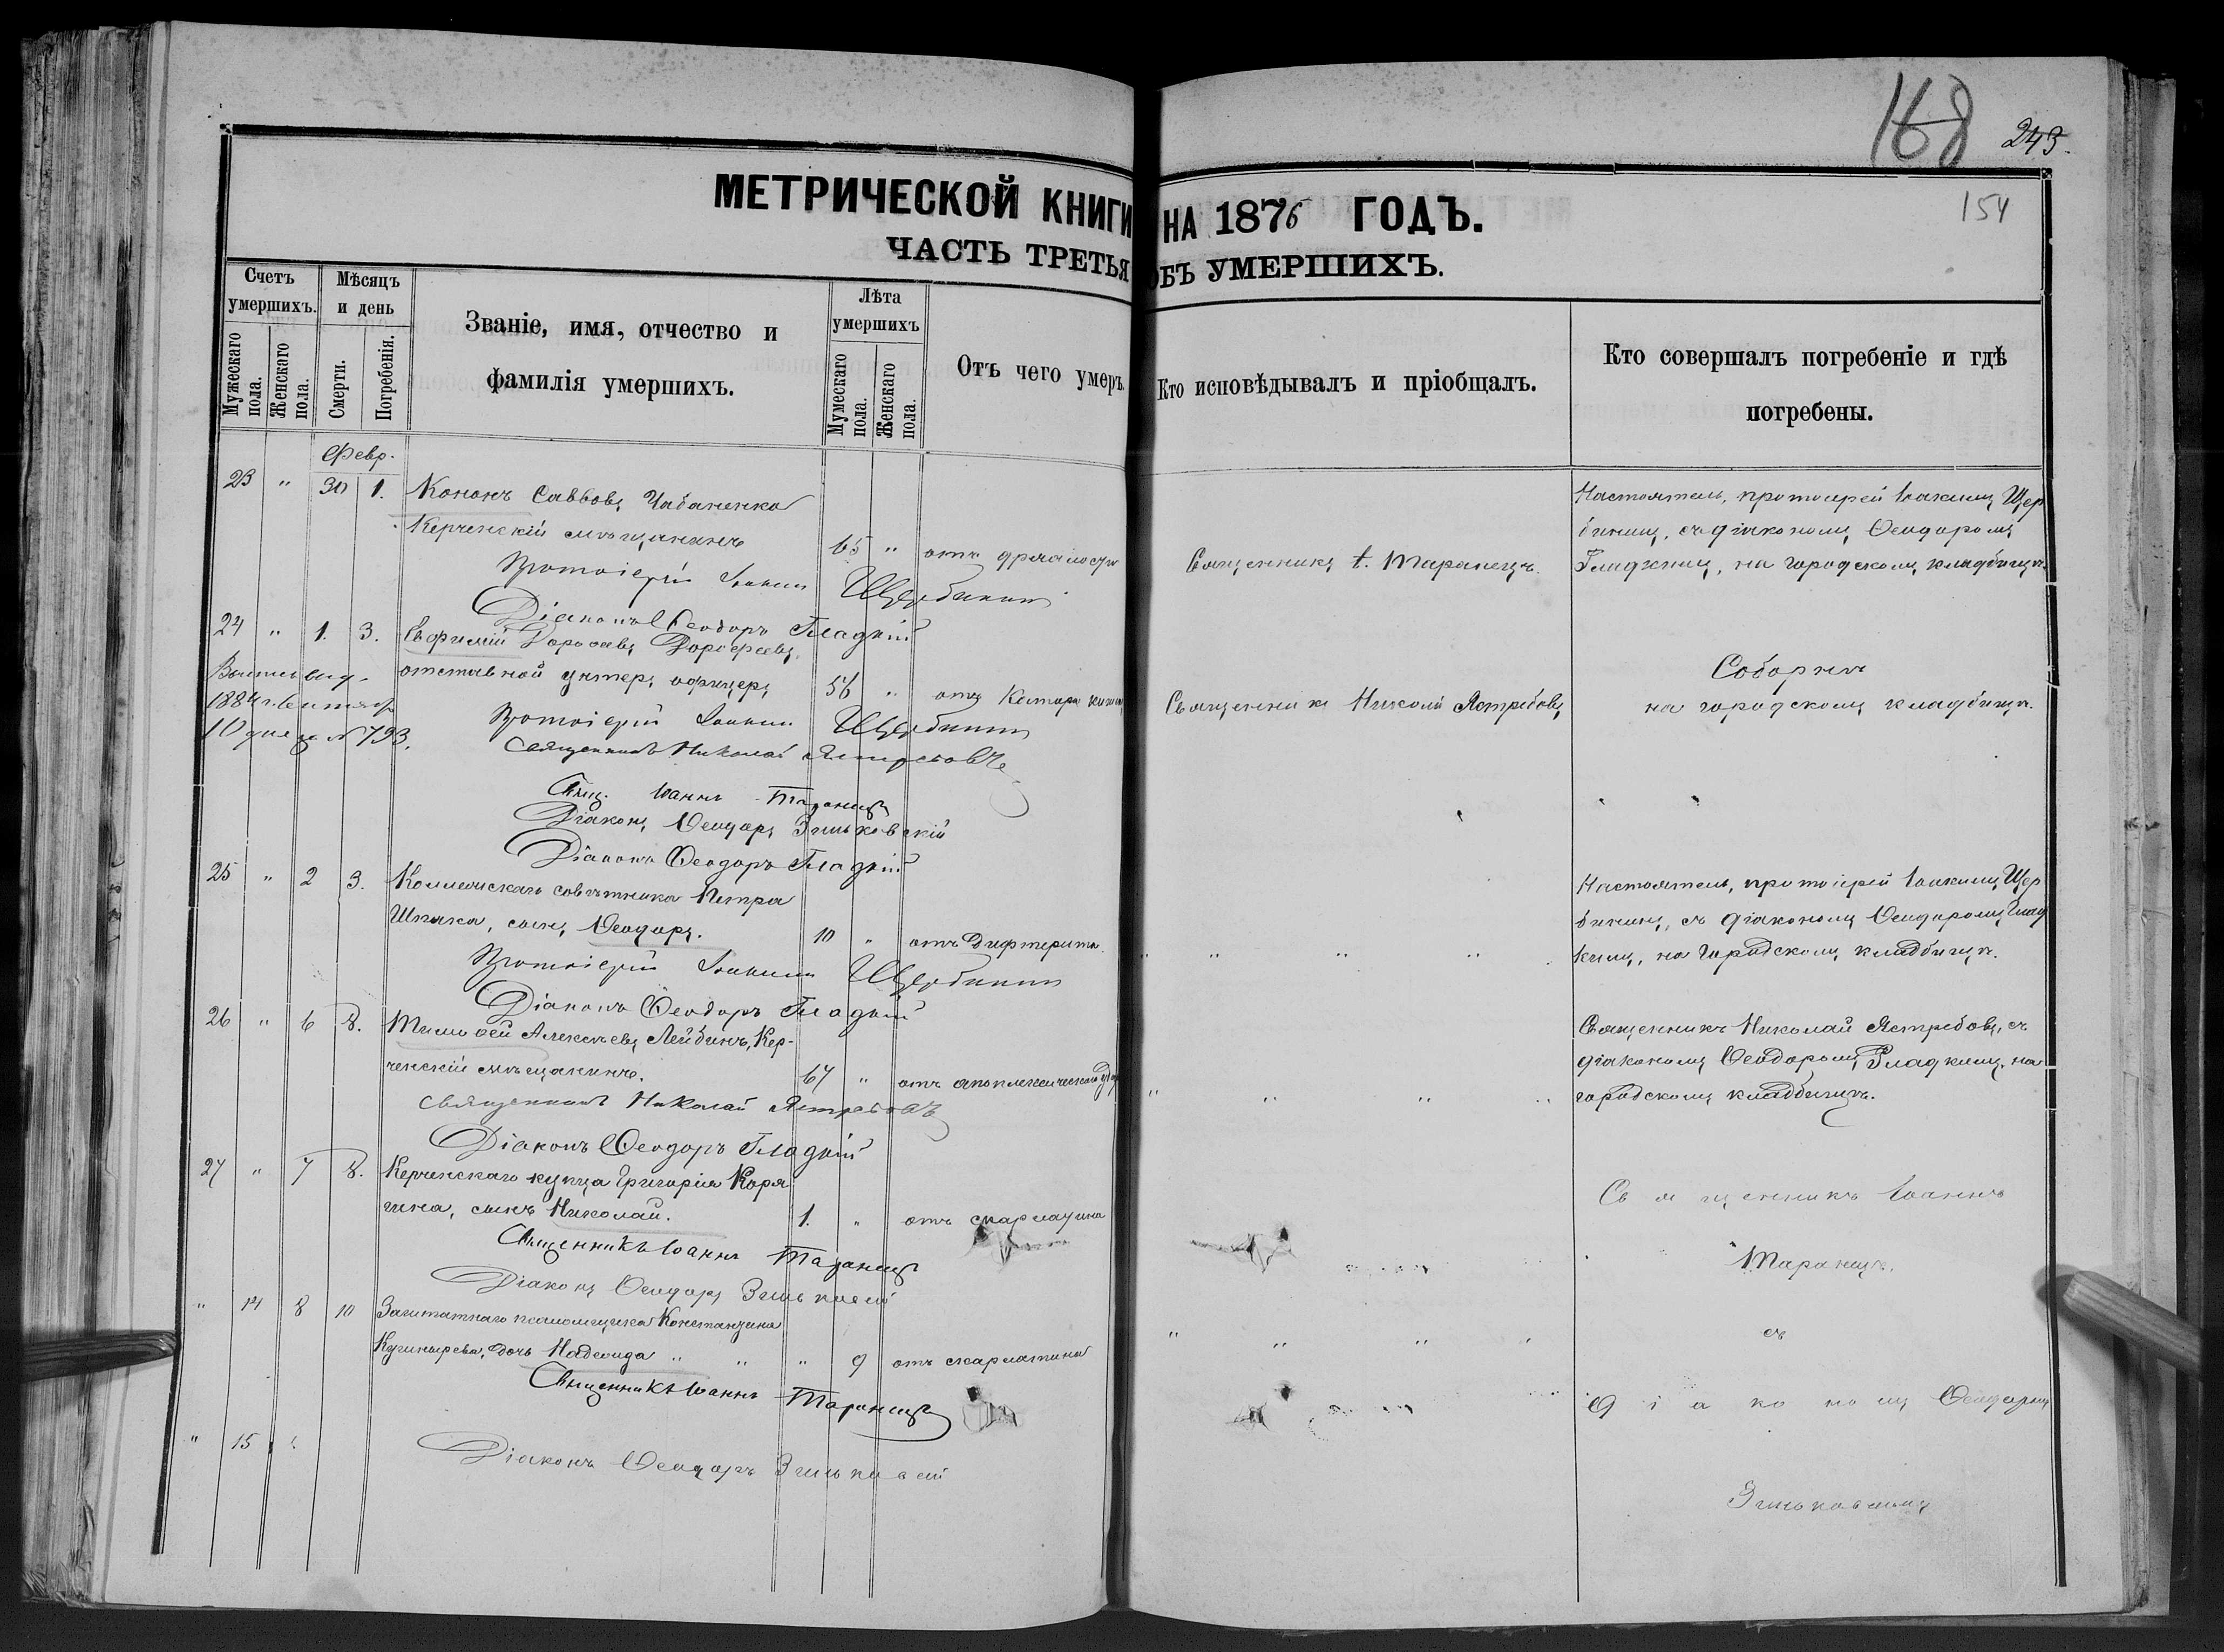 168 243.
154
МЕТРИЧЕСКОЙ КНИГИ НА 1876 ГОДЪ.
ЧАСТЬ ТРЕТЬЯ ОБЪ УМЕРШИХЪ.
Счетъ умершихъ.
Мужескаго пола.
Женскаго пола.
Мѣсяцъ и день
Смерти.
Погребенія.
Званіе, имя, отчество и
фамилія умершихъ.
Лѣта умершихъ
Мумескаго пола.
Женскаго пола.
Отъ чего умеръ.
Кто исповѣдывалъ и пріобщалъ.
Кто совершалъ погребеніе и гдѣ
погребены.
Февр.
23 " 30 1. Кононъ Саввовъ Чабаненко
Керченскій мѣщанинъ
65 " отъ дряхлости
Священникъ І. Таранецъ.
Настоятель, протоіерей Іоакимъ Щер
бининъ, съ діакономъ Ѳеодоромъ
Гладкимъ, на городскомъ кладбищѣ.
Протоіерей Іоакимъ Щербининъ
Діаконъ Ѳеодоръ Гладкій
24 " 1. 3. Евфимій Дороѳеевъ Дороѳеевъ,
отставной унтеръ офицеръ
56 " отъ Катара
Священникъ Николай Ястребовъ
Соборнѣ
на городскомъ кладбищѣ.
1884 г. Сентяб.
10 дня за № 793.
Протоіерей Іоакимъ Щербининъ
Священникъ Николай Ястребовъ
Свящ. Іоаннъ Таранецъ
Діаконъ Ѳеодоръ Зиньковскій
Діаконъ Ѳеодоръ Гладкій
25 " 2 3. Коллежскаго совѣтника Петра
Шпака, сынъ Ѳеодоръ.
10 " отъ Дифтерита.
" " " "
Настоятель, протоіерей Іоакимъ Щер
бининъ, съ діакономъ Ѳеодоромъ Глад
кимъ, на городскомъ кладбищѣ.
Протоіерей Іоакимъ Щербининъ
Діаконъ Ѳеодоръ Гладкій
26 " 6 8. Тимоѳей Алексѣевъ Лейбинъ, Кер-
ченскій мѣщанинъ.
67 " отъ апоплексическаго удар
" " " "
Священникъ Николай Ястребовъ, съ
діакономъ Ѳеодоромъ Гладкимъ, на
городскомъ кладбищѣ.
Священникъ Николай Ястребовъ
Діаконъ Ѳеодоръ Гладкій
27 " 7 8. Керченскаго купца Григорія Коря
гина, сынъ Николай.
1. " отъ скарлатины
Священникъ Іоаннъ
Таранецъ.
Священникъ Іоаннъ Таранецъ
Діаконъ Ѳеодоръ Зиньковскій
" 14 8 10 Заштатнаго псаломщика Константина
дочь Надежда " " " 9 отъ скарлатины
" " " "
съ
Священникъ Іоаннъ Таранецъ
діакономъ Ѳеодоромъ
" 15
Діаконъ Ѳеодоръ Зиньковскій
Зиньковскимъ